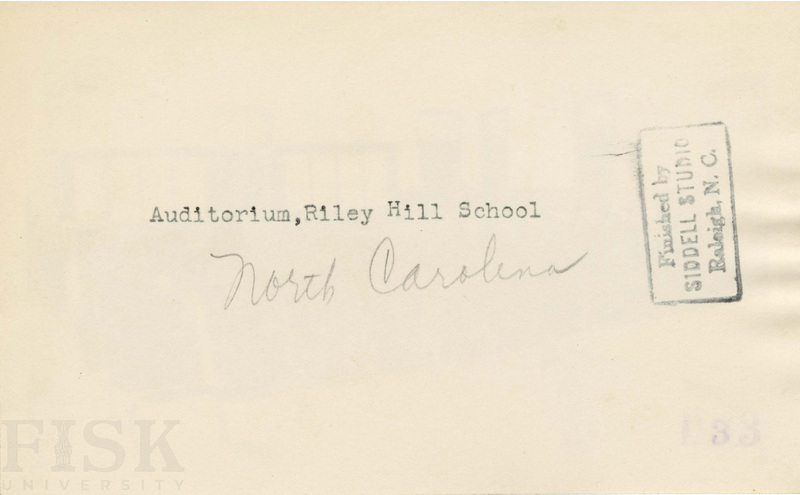 Auditorium,Riley Hill School
North Carolina
Finished by
SIDDELL STUDIO
Raleigh, N. C.
FISK
UNIVERSITY